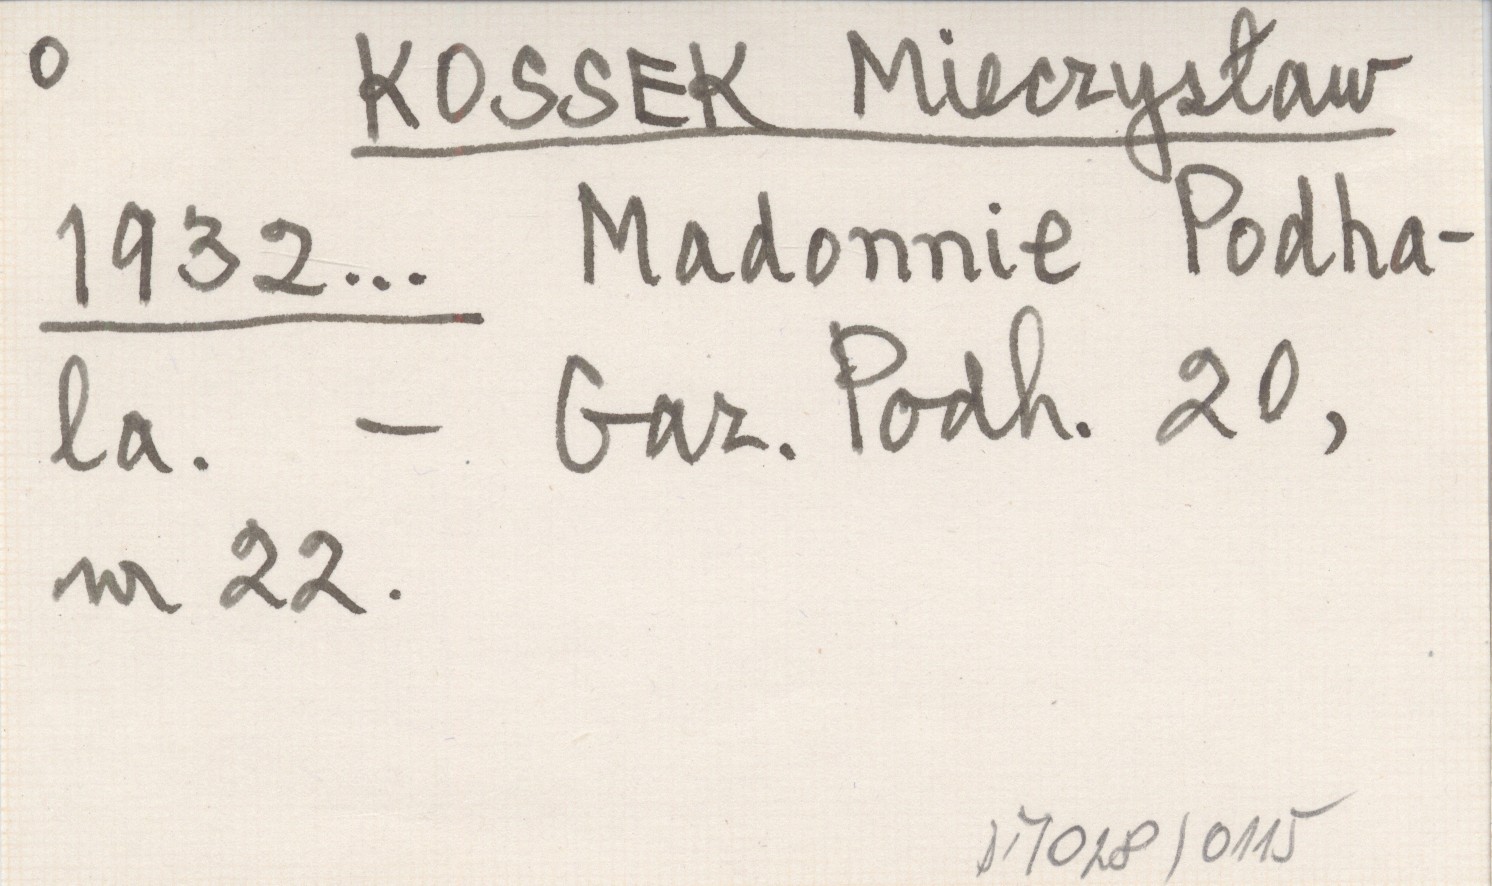 o KOSSEK Mieczysław
1932... Madonnie Podha-
la. — Gaz. Podh. 20,
nr 22.
028/0115